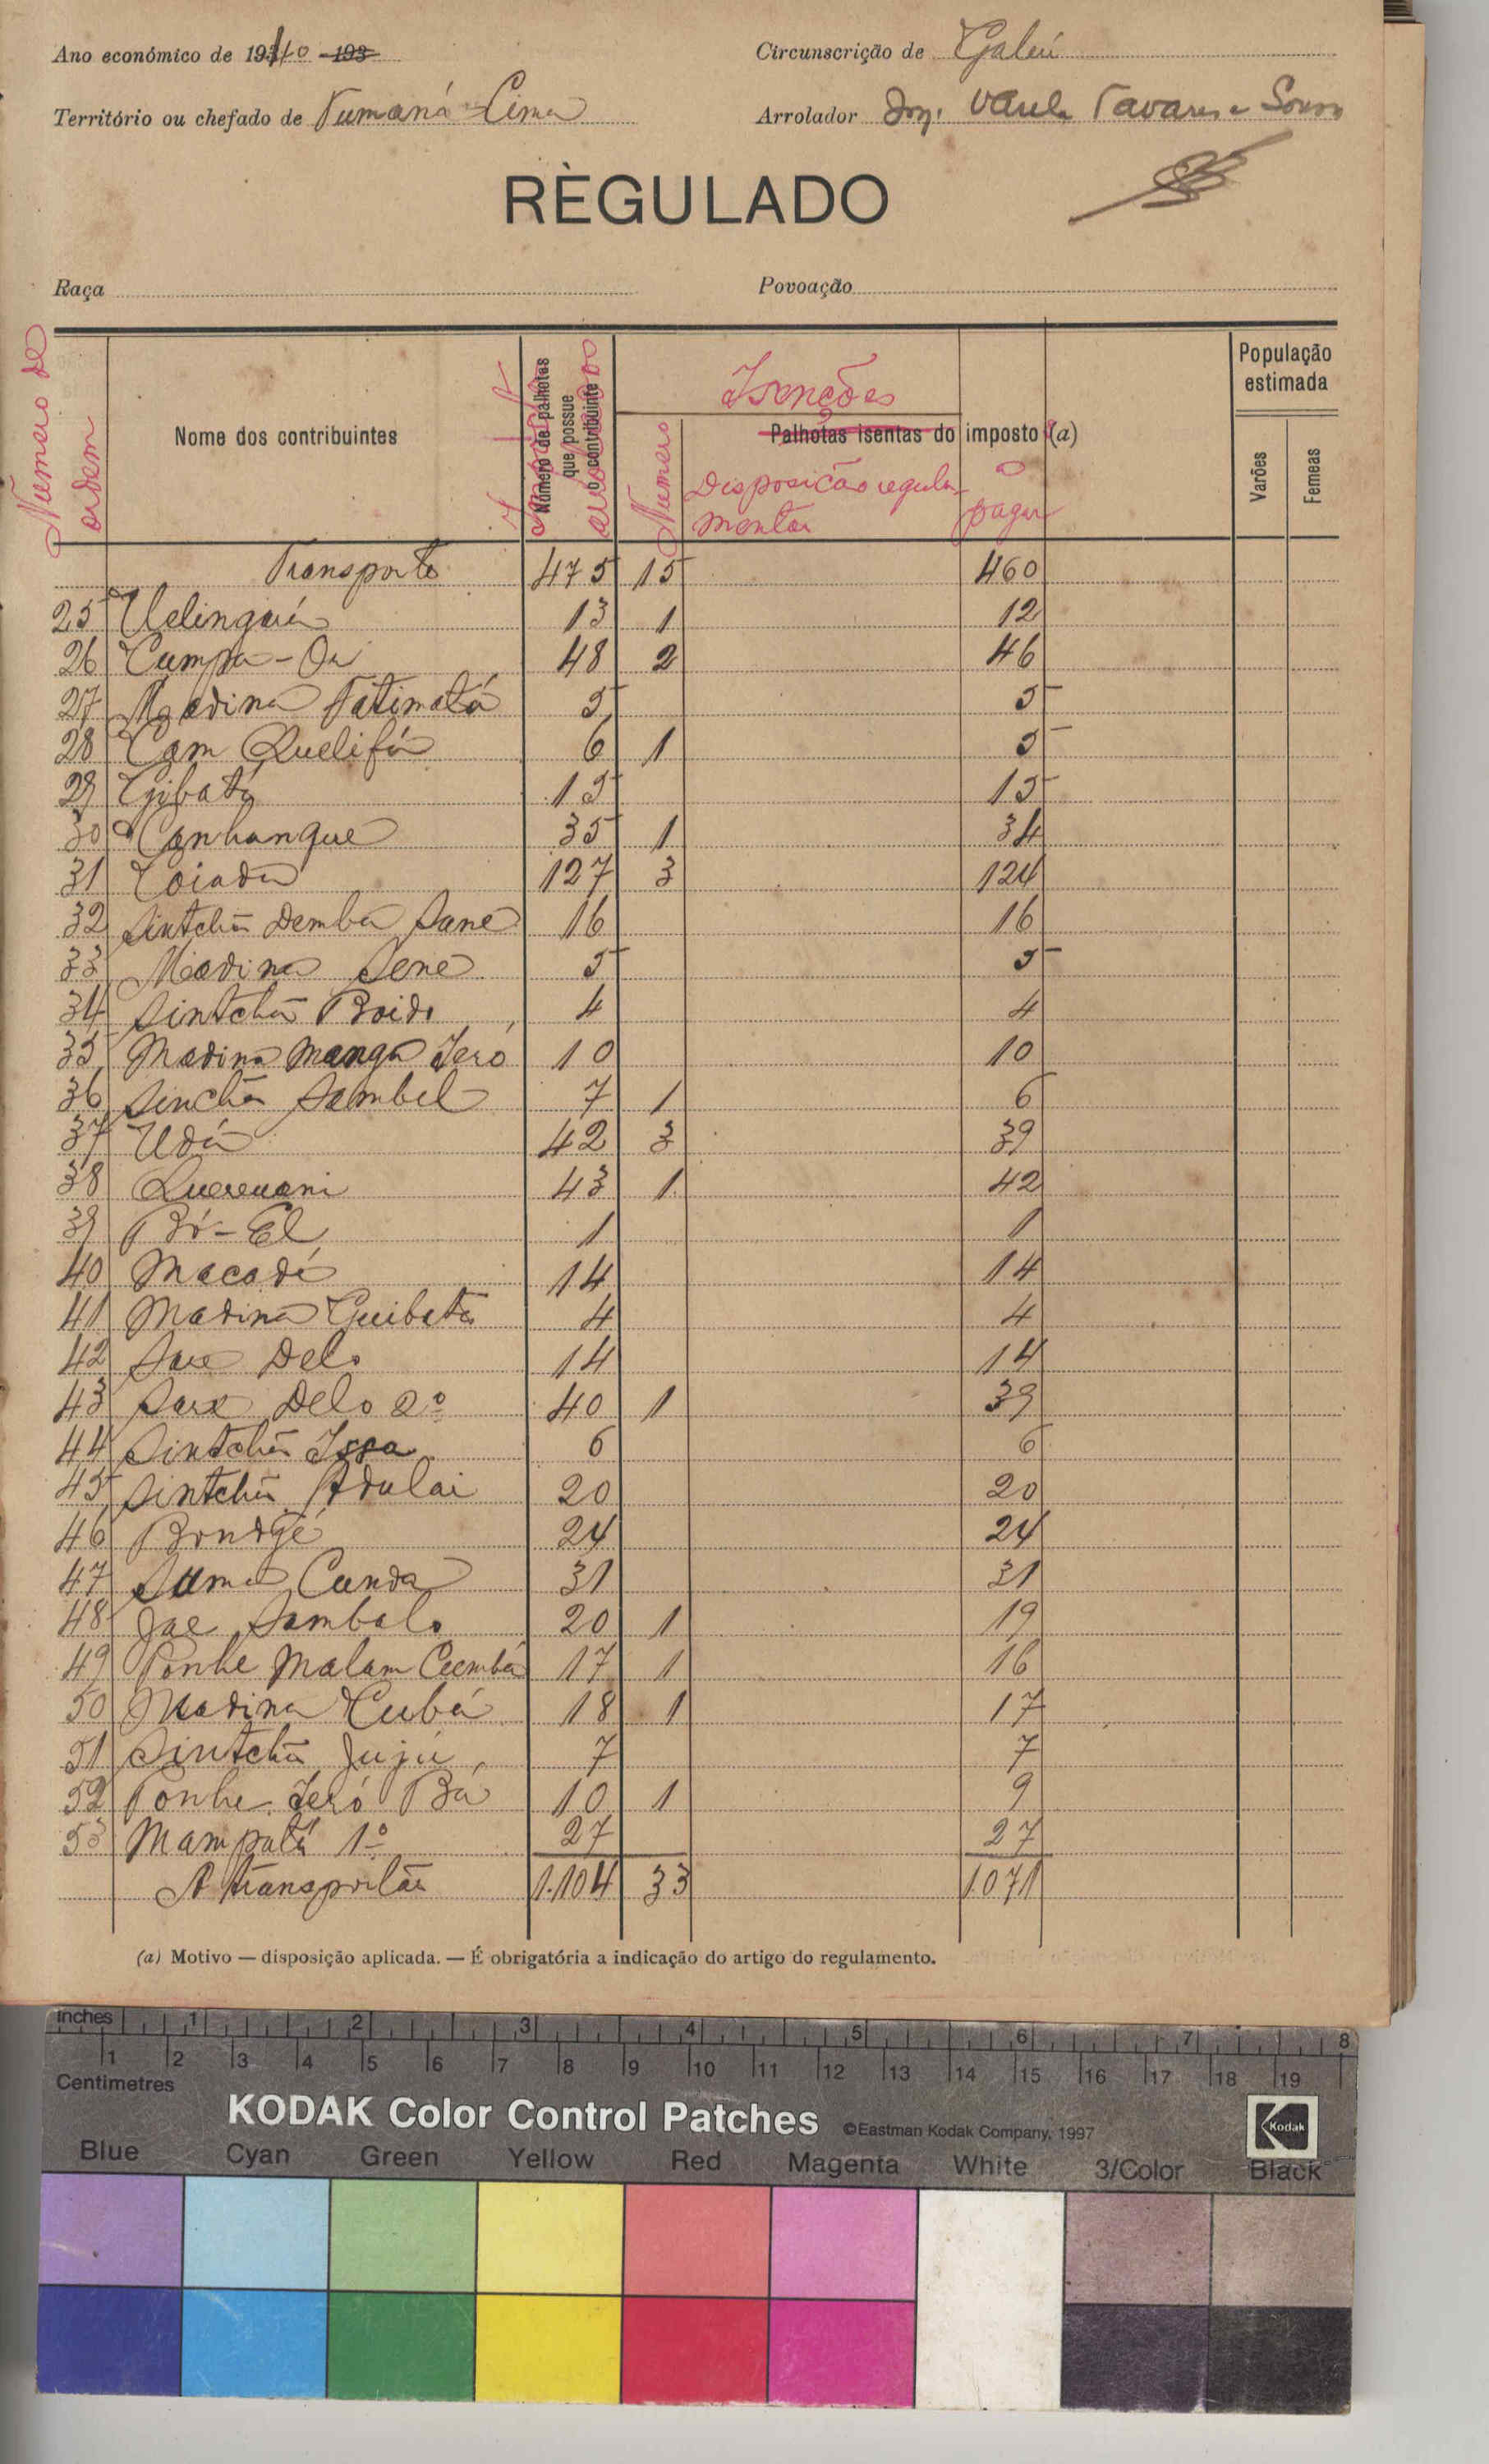 Ano económico de 1940 193
Circunscrição de Gabú
Território ou chefado de Tumaná-Cima
Arrolador Tavares e Sousa
RÈGULADO
Raça
Povoação
Numero de ordem
Nome dos contribuintes
Número de palhotas que possue o contribuinte
Isenções
Palhotas isentas do imposto (a)
Numero
Disposição regulamentar
a pagar
População estimada
Varões
Femeas
Transporte 475 15 460
25 Velingará 13 1 12
26 Cumpa-Or 48 2 46
27 Madina Fatimatá 5 5
28 Cam Quelifá 6 1 5
29 Gibatá 15 15
30 Canhanque 35 1 34
31 Coiada 127 3 124
32 Sintchã Demba Sané 16 16
33 Madina Sene 5 5
34 Sintchã Boido 4 4
35 Madina Manga Iero 10 10
36 Sinchã Sambel 7 1 6
37 Udá 42 3 39
38 Quereuani 43 1 42
39 Bó-El 1 1
40 Macadé 14 14
41 Madina Guibata 4 4
42 Sare Delo 14 14
43 Sare Delo 2º 40 1 39
44 Sintchã Issa 6 6
45 Sintchã Adulai 20 20
46 Bondgé 24 24
47 Suma Cunda 31 31
48 Jae Sambalo 20 1 19
49 Ponhe Malam Cumbá 17 1 16
50 Madina Cubá 18 1 17
51 Sintchã Jujú 7 7
52 Ponhe Ieró Bá 10 1 9
53 Mampatá 1º 27 27
A transportar 1.104 33 1.071
(a) Motivo — disposição aplicada. — É obrigatória a indicação do artigo do regulamento.
inches 1 2 3 4 5 6 7 8
1 2 3 4 5 6 7 8 9 10 11 12 13 14 15 16 17 18 19
Centimetres
KODAK Color Control Patches ©Eastman Kodak Company, 1997 Kodak
Blue Cyan Green Yellow Red Magenta White 3/Color Black